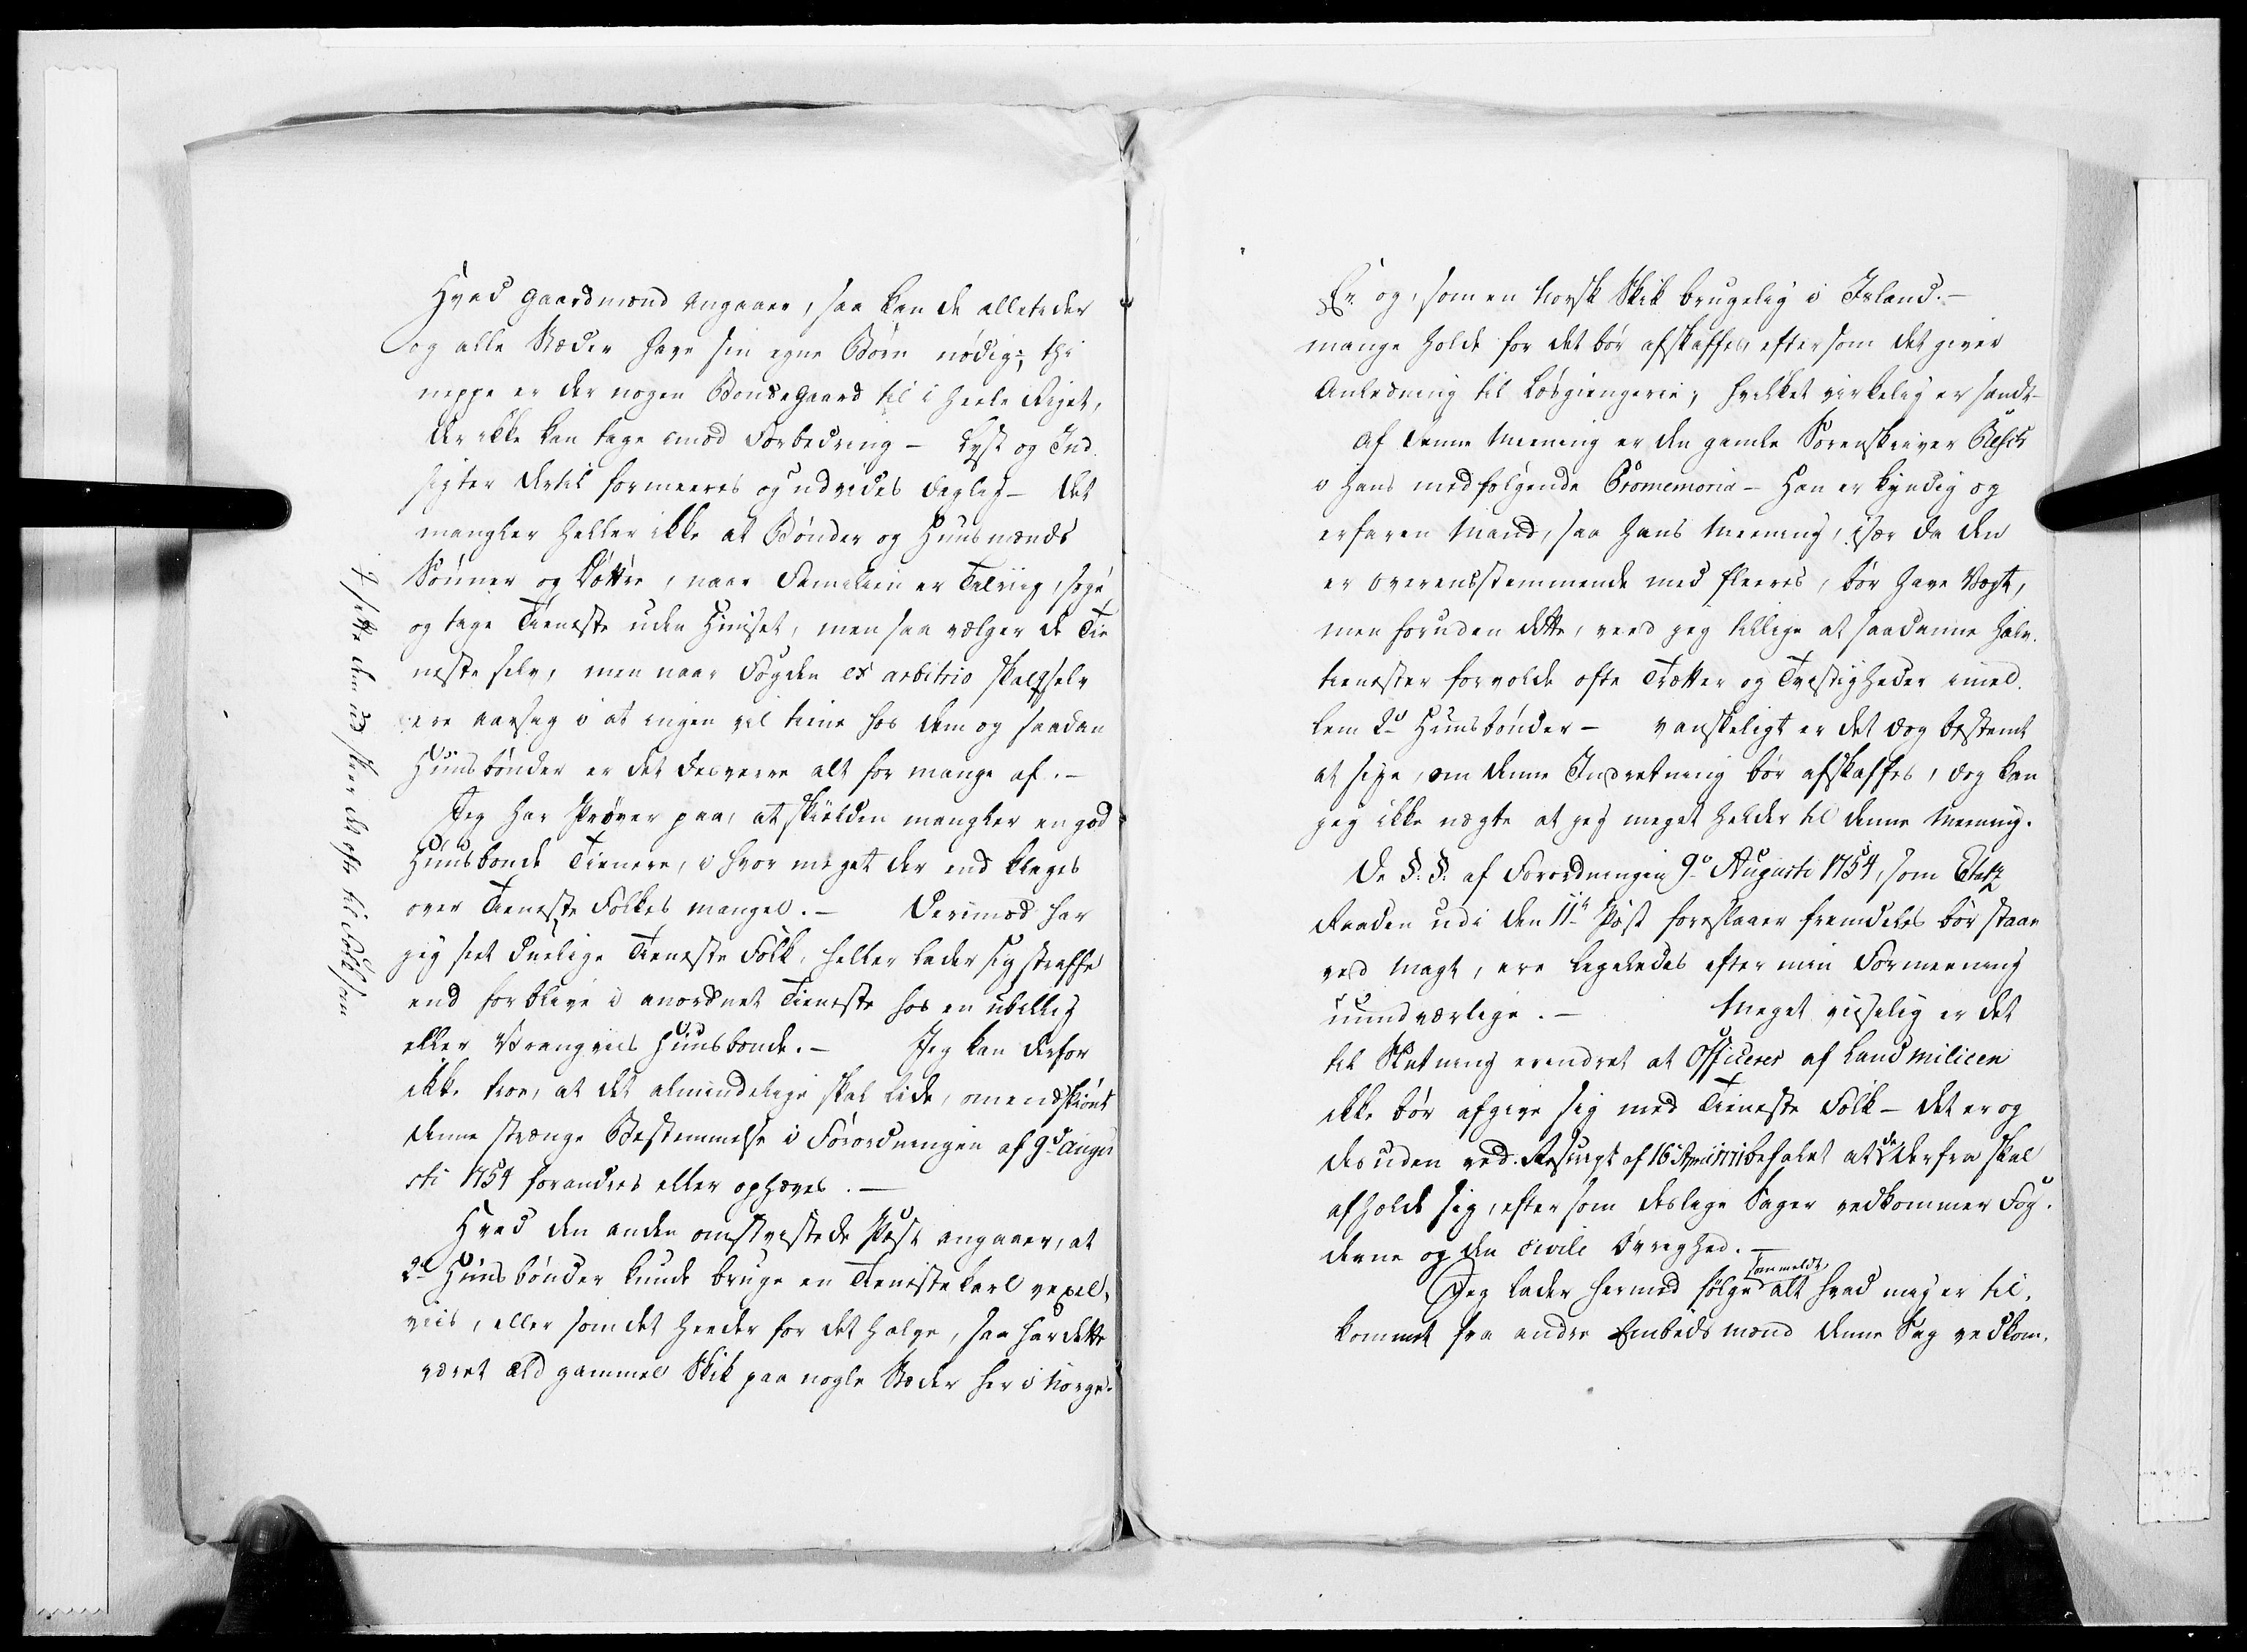 Hvad Gaardmænd angaaer, saa kan de alletider
og alle Stæder have sin egne Børn nødig; thi
neppe er der nogen Bondegaard til i heele Riget,
der ikke kan tage imod Forbedring - Lyst og Ind-
sigter dertil formeeres og udvides daglig - Det
mangler heller ikke at Bønder og Huusmænds
Sønner og Døttre, naar Familien er talriig, søge
og tage Tieneste uden Huuset, men saa vælger de Tie
neste selv, men naar Fogden ex arbitrio skal
selv
ere aarsag i at ingen vil tiene hos dem og saadan
Huusbønder er det desverre alt for mange af. -
Jeg har Prøver paa, at skielden mangler en god
Huusbonde Tienere, i hvor meget der end klages
over Tieneste Folkes mangel. - Derimod har
jeg seet duelige Tieneste Folk, heller lader sig straffe
end forblive i anordnet Tieneste hos en ubillig
eller Vrangviis Huusbonde. - Jeg kan derfor
ikke troe, at det almindelige skal lide, omendskiønt
denne strænge Bestemmelse i Forordningen af 9d Augu
sti 1754 forandres eller ophæves. -
Hvad den anden omtvistede Post angaaer, at
2de Huusbønder kunde bruge en Tienistekarl vexel-
viis, eller som det heeder for det halve, saa har dette
været ældgammel Skik paa nogle Stæder her i Norge.
sette dem ud skeer det ofte til Folk som
Er og, som en Norsk Skik brugelig i Island. -
mange holde for det bør afskaffes, eftersom det giver
Anledning til Løsgiengerie, hvilket virkelig er sandt -
Af denne Meening er den gamle Sorenskriver
i hans medfølgende Promemoria - Han er kyndig og
erfaren Mand, saa hans Meening, især da den
er overensstemmende med fleeres, bør have Vægt,
men foruden dette, veed jeg tillige at saadanne halv-
tienester forvolde ofte Trætter og Tvistigheder imel-
lem 2de Huusbønder - vanskeligt er det dog bestemt
at sige, om denne Indretning bør afskaffes, dog kan
jeg ikke nægte at jeg meget helder til denne Meening.
De §. §. af Forordningen 9de Augusti 1754, som Etatz
Raaden udi den 11te Post foreslaaer fremdeles bør staae
ved Magt, ere ligeledes efter min Formeening
uundværlige. - Meget viiselig er det
til Slutning erindret at Officerer af Land Milicen
ikke bør afgive sig med Tieneste Folk - det er og
desuden ved Rescript af 16 April 1771 befalet at de derfra skal
afholde sig, eftersom deslige Sager vedkommer Fog-
derne og den civile Øvrighed. -
Jeg lader hermed følge sammeldt alt hvad mig er til-
kommet fra andre Embedsmænd denne Sag vedkom-